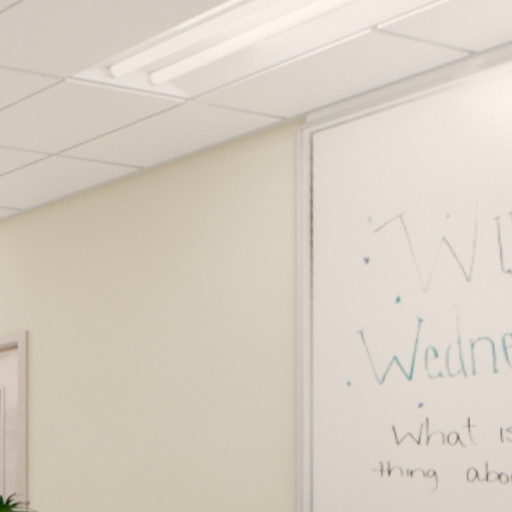 Wedne
What is
thing abo